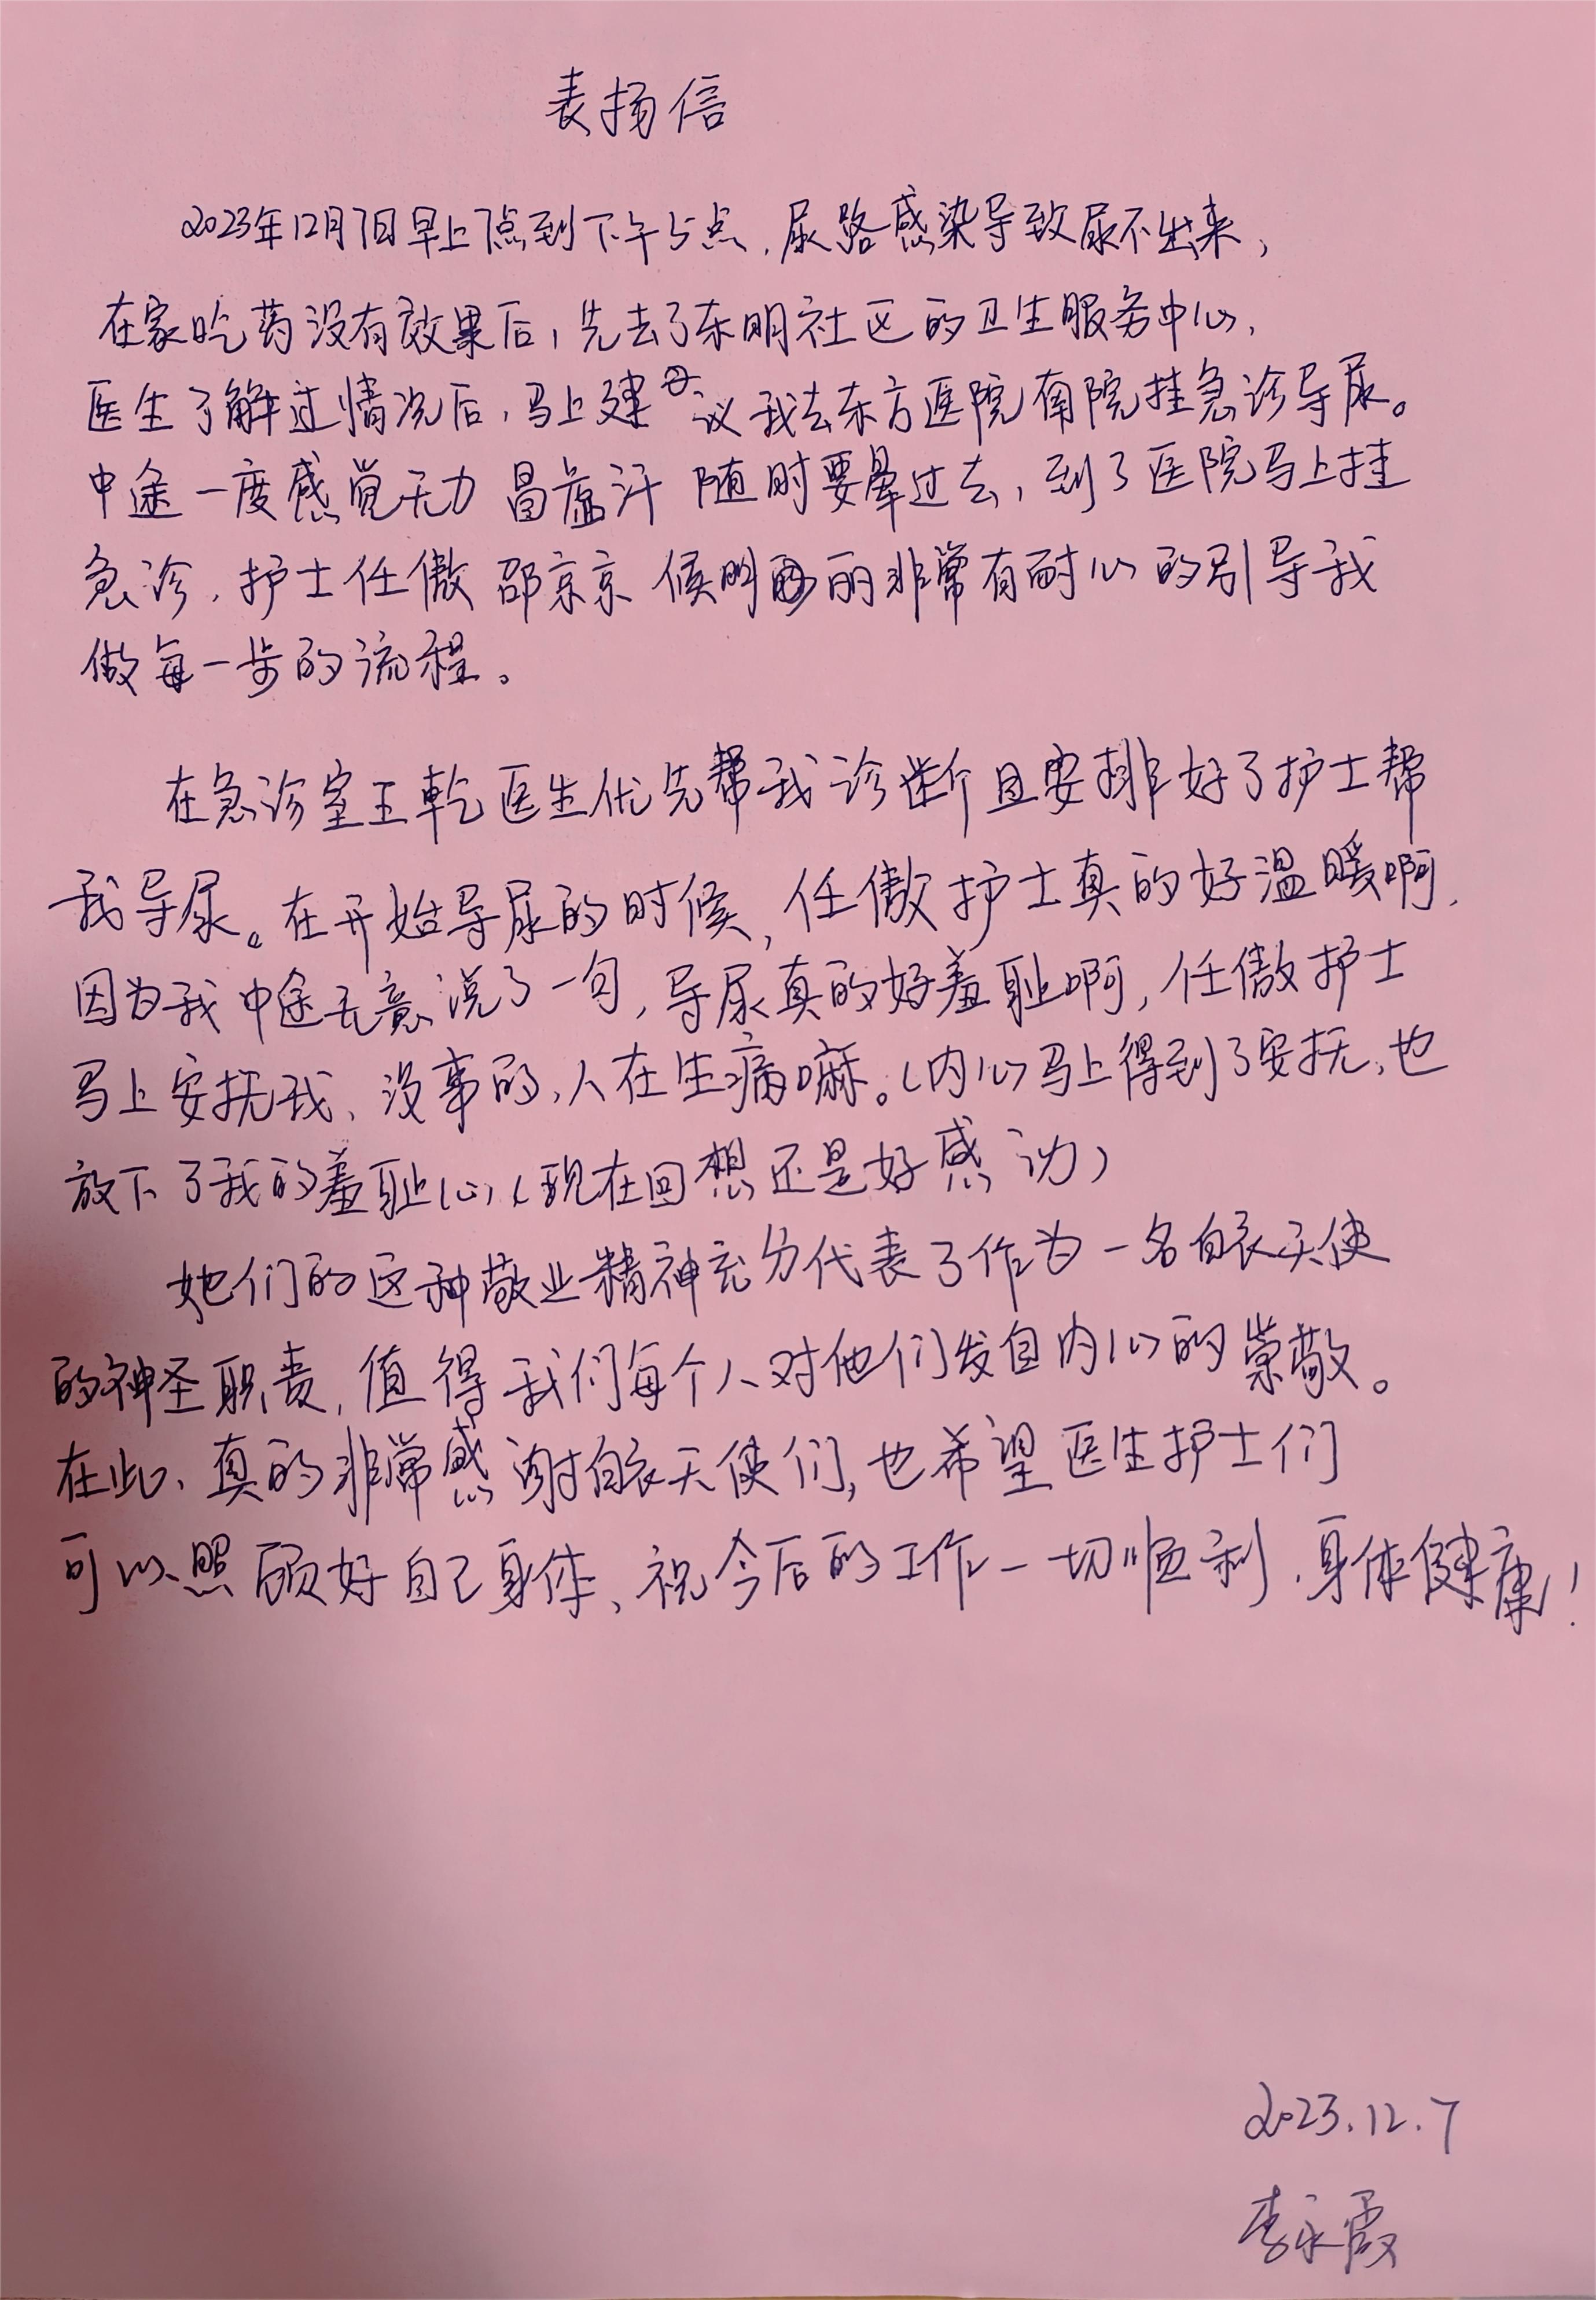 表扬信
2023年12月7日早上7点到下午5点，尿路感染导致尿不出来，
在家吃药没有效果后，先去了东明社区的卫生服务中心，
医生了解过情况后，马上建议我去东方医院南院挂急诊导尿。
中途一度感觉无力 冒虚汗 随时要晕过去，到了医院马上挂
急诊，护士任傲 邵京京 候明丽非常有耐心的引导我
做每一步的流程。
在急诊室王乾医生优先帮我诊断且安排好了护士帮
我导尿。在开始导尿的时候，任傲护士真的好温暖啊，
因为我中途无意说了一句，导尿真的好羞耻啊，任傲护士
马上安抚我、没事的，人在生病嘛。（内心马上得到了安抚，也
放下了我的羞耻心（现在回想还是好感动）
她们的这种敬业精神充分代表了作为一名白衣天使
的神圣职责，值得我们每个人对他们发自内心的崇敬。
在此、真的非常感谢白衣天使们，也希望医生护士们
可以照顾好自己身体、祝今后的工作一切顺利，身体健康！
2023.12.7
李永霞